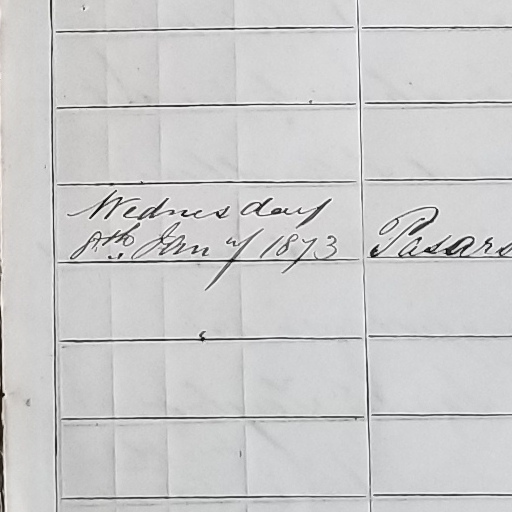 Wednesday
8th. Jany 1873 Pasars